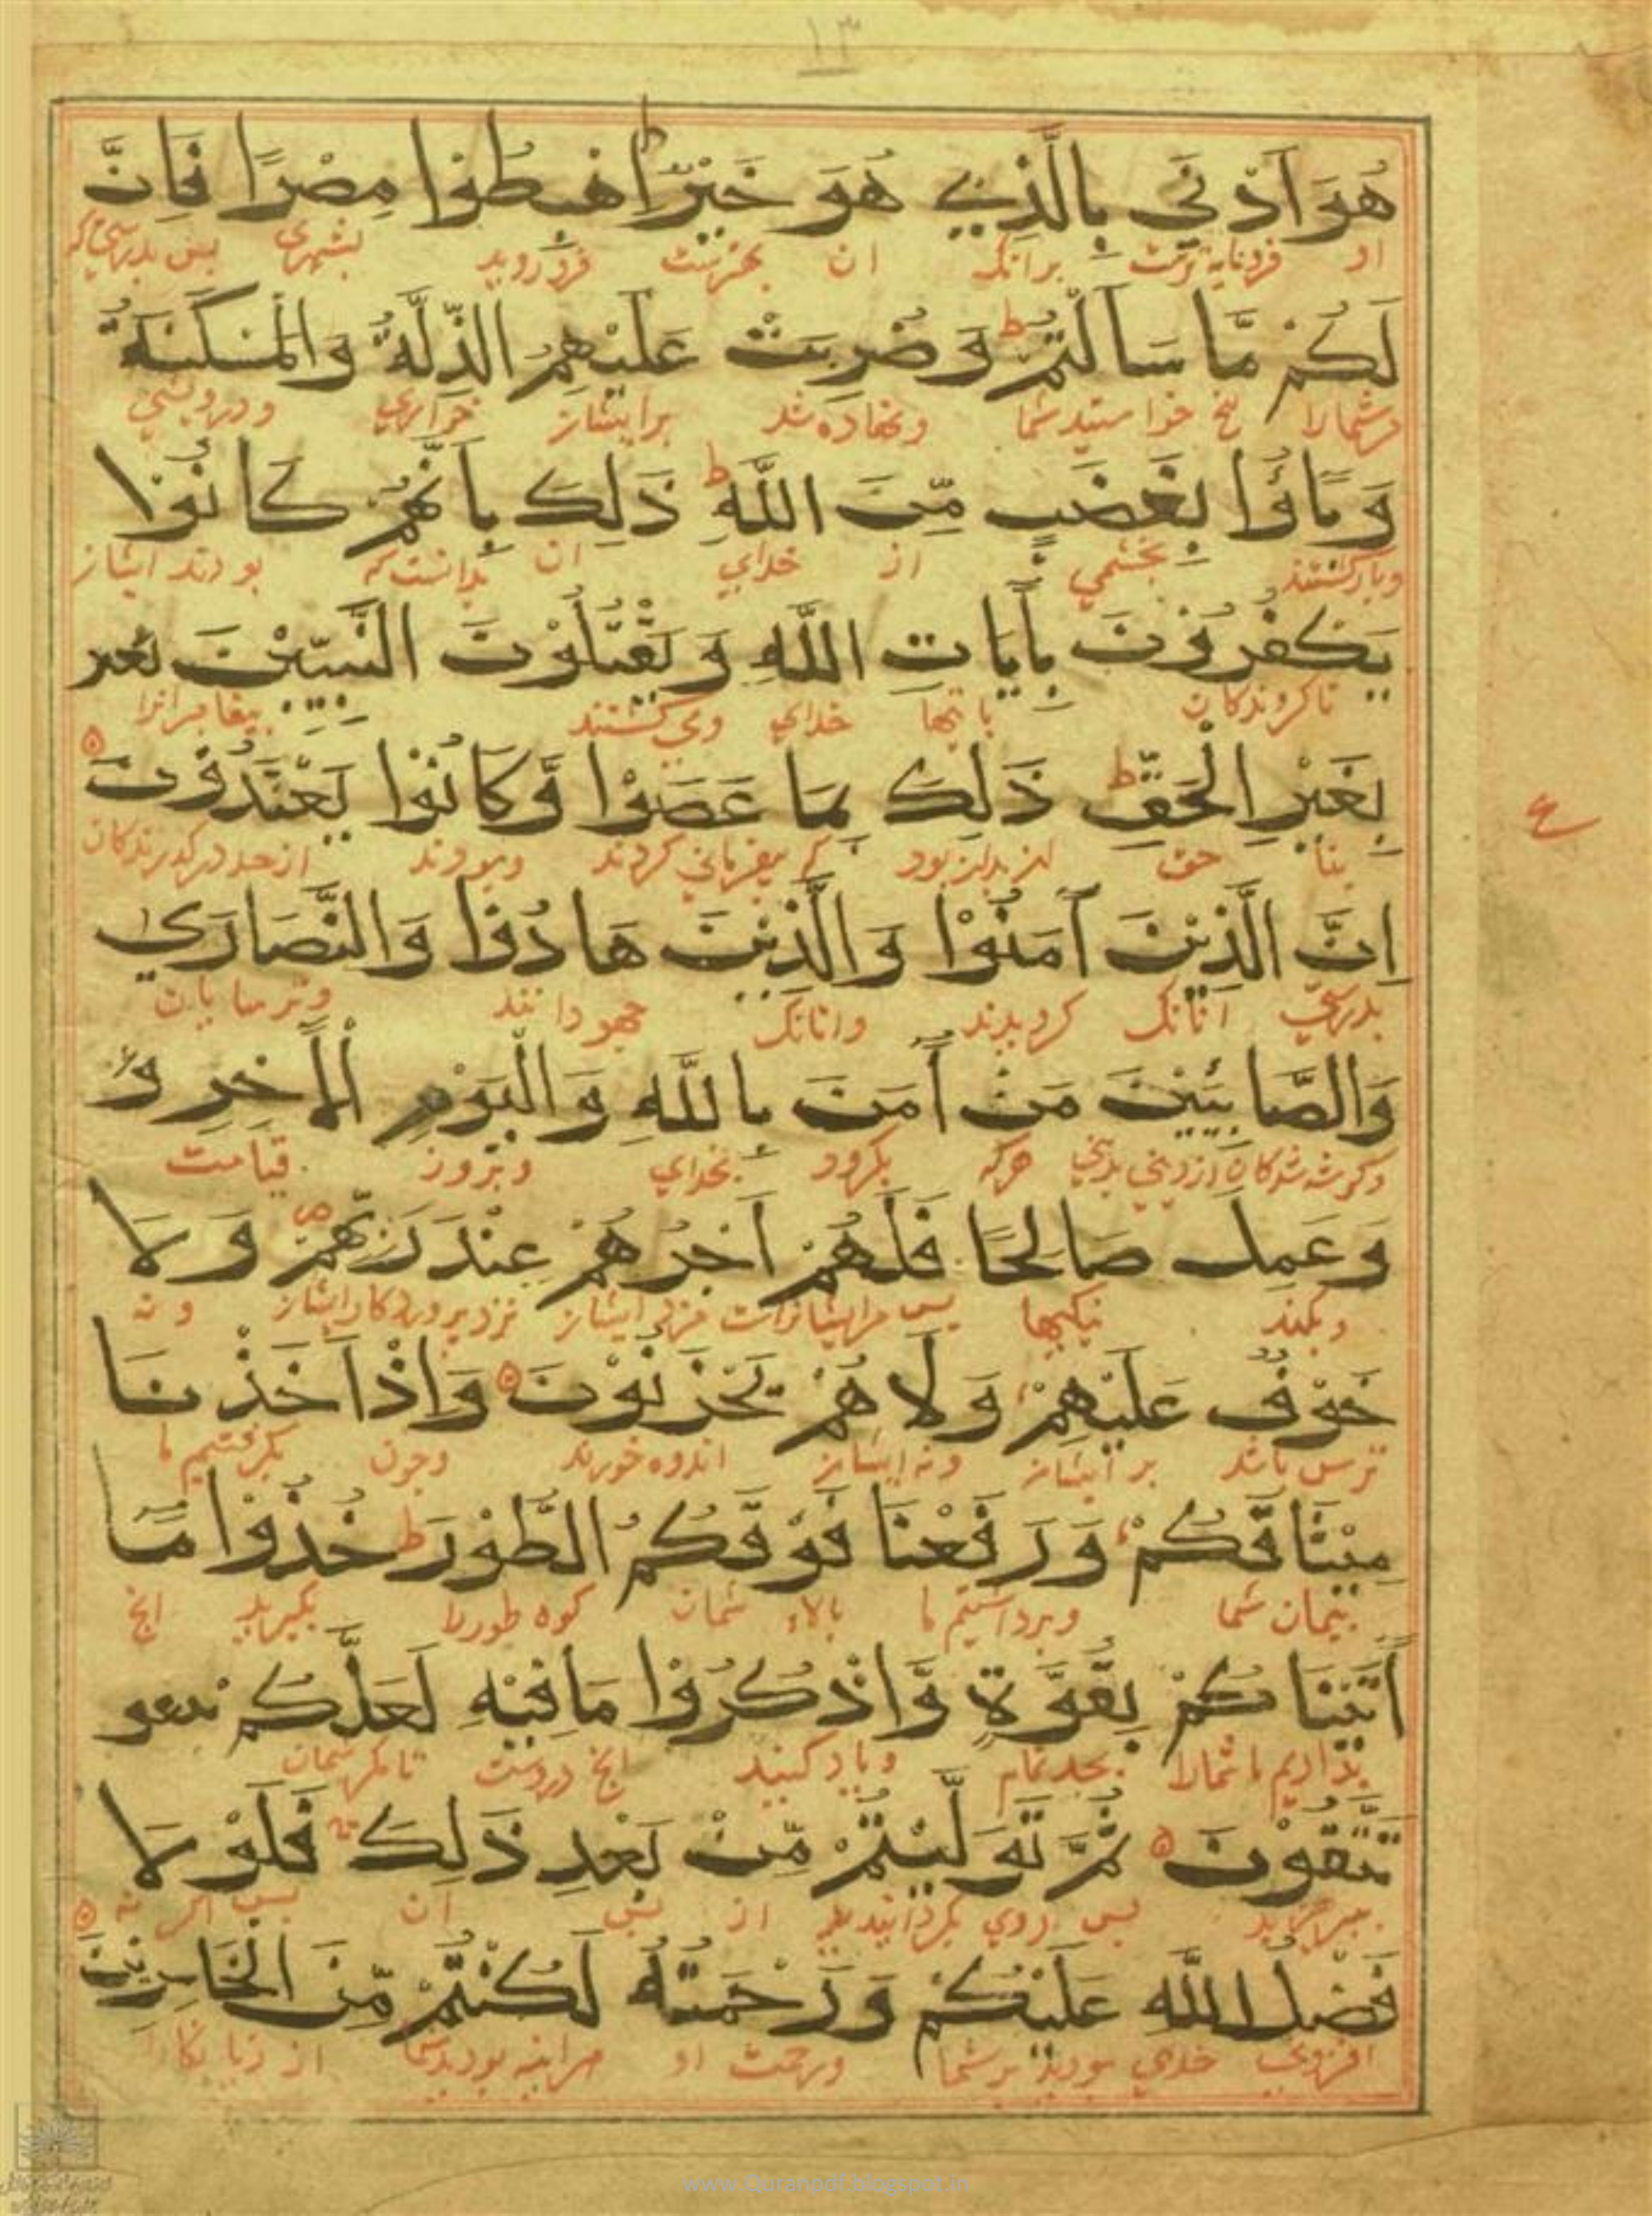 ١٣
هُوَ اَدْنٰي بِالَّذِي هُوَ خَيْرٌ ط اهْبِطُوْا مِصْرًا فَاِنَّ
او فرومايه ترست برانك ان بهترست فرو رويد بشهرى پس بدرستي كه
لَكُمْ مَّا سَاَلْتُمْ ط وَ ضُرِبَتْ عَلَيْهِمُ الذِّلَّةُ وَالْمَسْكَنَةُ
مرشمارا انچ خواستيد شما ونهاده شد برايشان خواري ودرويشي
وَ بَاؤُا بِغَضَبٍ مِّنَ اللّٰهِ ط ذَلِكَ بِاَنَّهُمْ كَانُوْا
وبازگشتند بخشمي از خداي ان بدانست كه بودند ايشان
يَكْفُرُوْنَ بِاٰيَاتِ اللّٰهِ وَ يَقْتُلُوْنَ النَّبِيّيْنَ بغير
ناكروندكان باتيها خداي ومي كشتند پيغامبرانرا
بِغَيْرِ الْحَقِّ ط ذَلِكَ بِمَا عَصَوْا وَّ كَانُوْا يَعْتَدُوْنَ ۵
بنا حق وبودند از حد درگذرندكان
ع
اِنَّ الَّذِيْنَ اٰمَنُوْا وَالَّذِيْنَ هَادُوْا وَالنَّصَارٰي
بدرستي آنانك گرويدند وانانك جهودانند وترسايان
وَالصَّابِئِيْنَ مَنْ اٰمَنَ بِاللّٰهِ وَالْيَوْمِ الْاٰخِرِ و
هركه بگرود بخداي وبروز قيامت
وَعَمِلَ صَالِحًا فَلَهُمْ اَجْرُهُمْ عِنْدَ رَبِّهِمْ ص وَ لَا
وبكند نيكيها پس مرايشانراست مزد ايشان نزد پروردكار ايشان و نه
خَوْفٌ عَلَيْهِمْ وَ لَا هُمْ يَحْزَنُوْنَ ۵ وَاِذْ اَخَذْنَا
ترس باشد بر ايشان ونه ايشان اندوه خورند وچون بگرفتيم ما
مِيْثَاقَكُمْ وَ رَفَعْنَا فَوْقَكُمُ الطُّوْرَ ط خُذُوْا مَا
پيمان شما وبرداشتيم ما بالاء شمان كوه طور را بگيريد انچ
اٰتَيْنَاكُمْ بِقُوَّةٍ وَّاذْكُرُوْا مَا فِيْهِ لَعَلَّكُمْ تتقو
بداديم ما شمارا بجد تمام وياد كنيد انچ دروست تا مگر شمان
تَتَّقُوْنَ ۵ ثُمَّ تَوَلَّيْتُمْ مِّنْ بَعْدِ ذَلِكَ فَلَوْ لَا
بپرهيزيد پس روي بگردانيديد از پس ان پس اگر نه
فَضْلُ اللّٰهِ عَلَيْكُمْ وَ رَحْمَتُهُ لَكُنْتُمْ مِّنَ الْخَاسِرِيْنَ ۵
افزوني خداي بودي برشما ورحمت او هراينه بوديد از زيانكاران
www.Quranpdf.blogspot.in